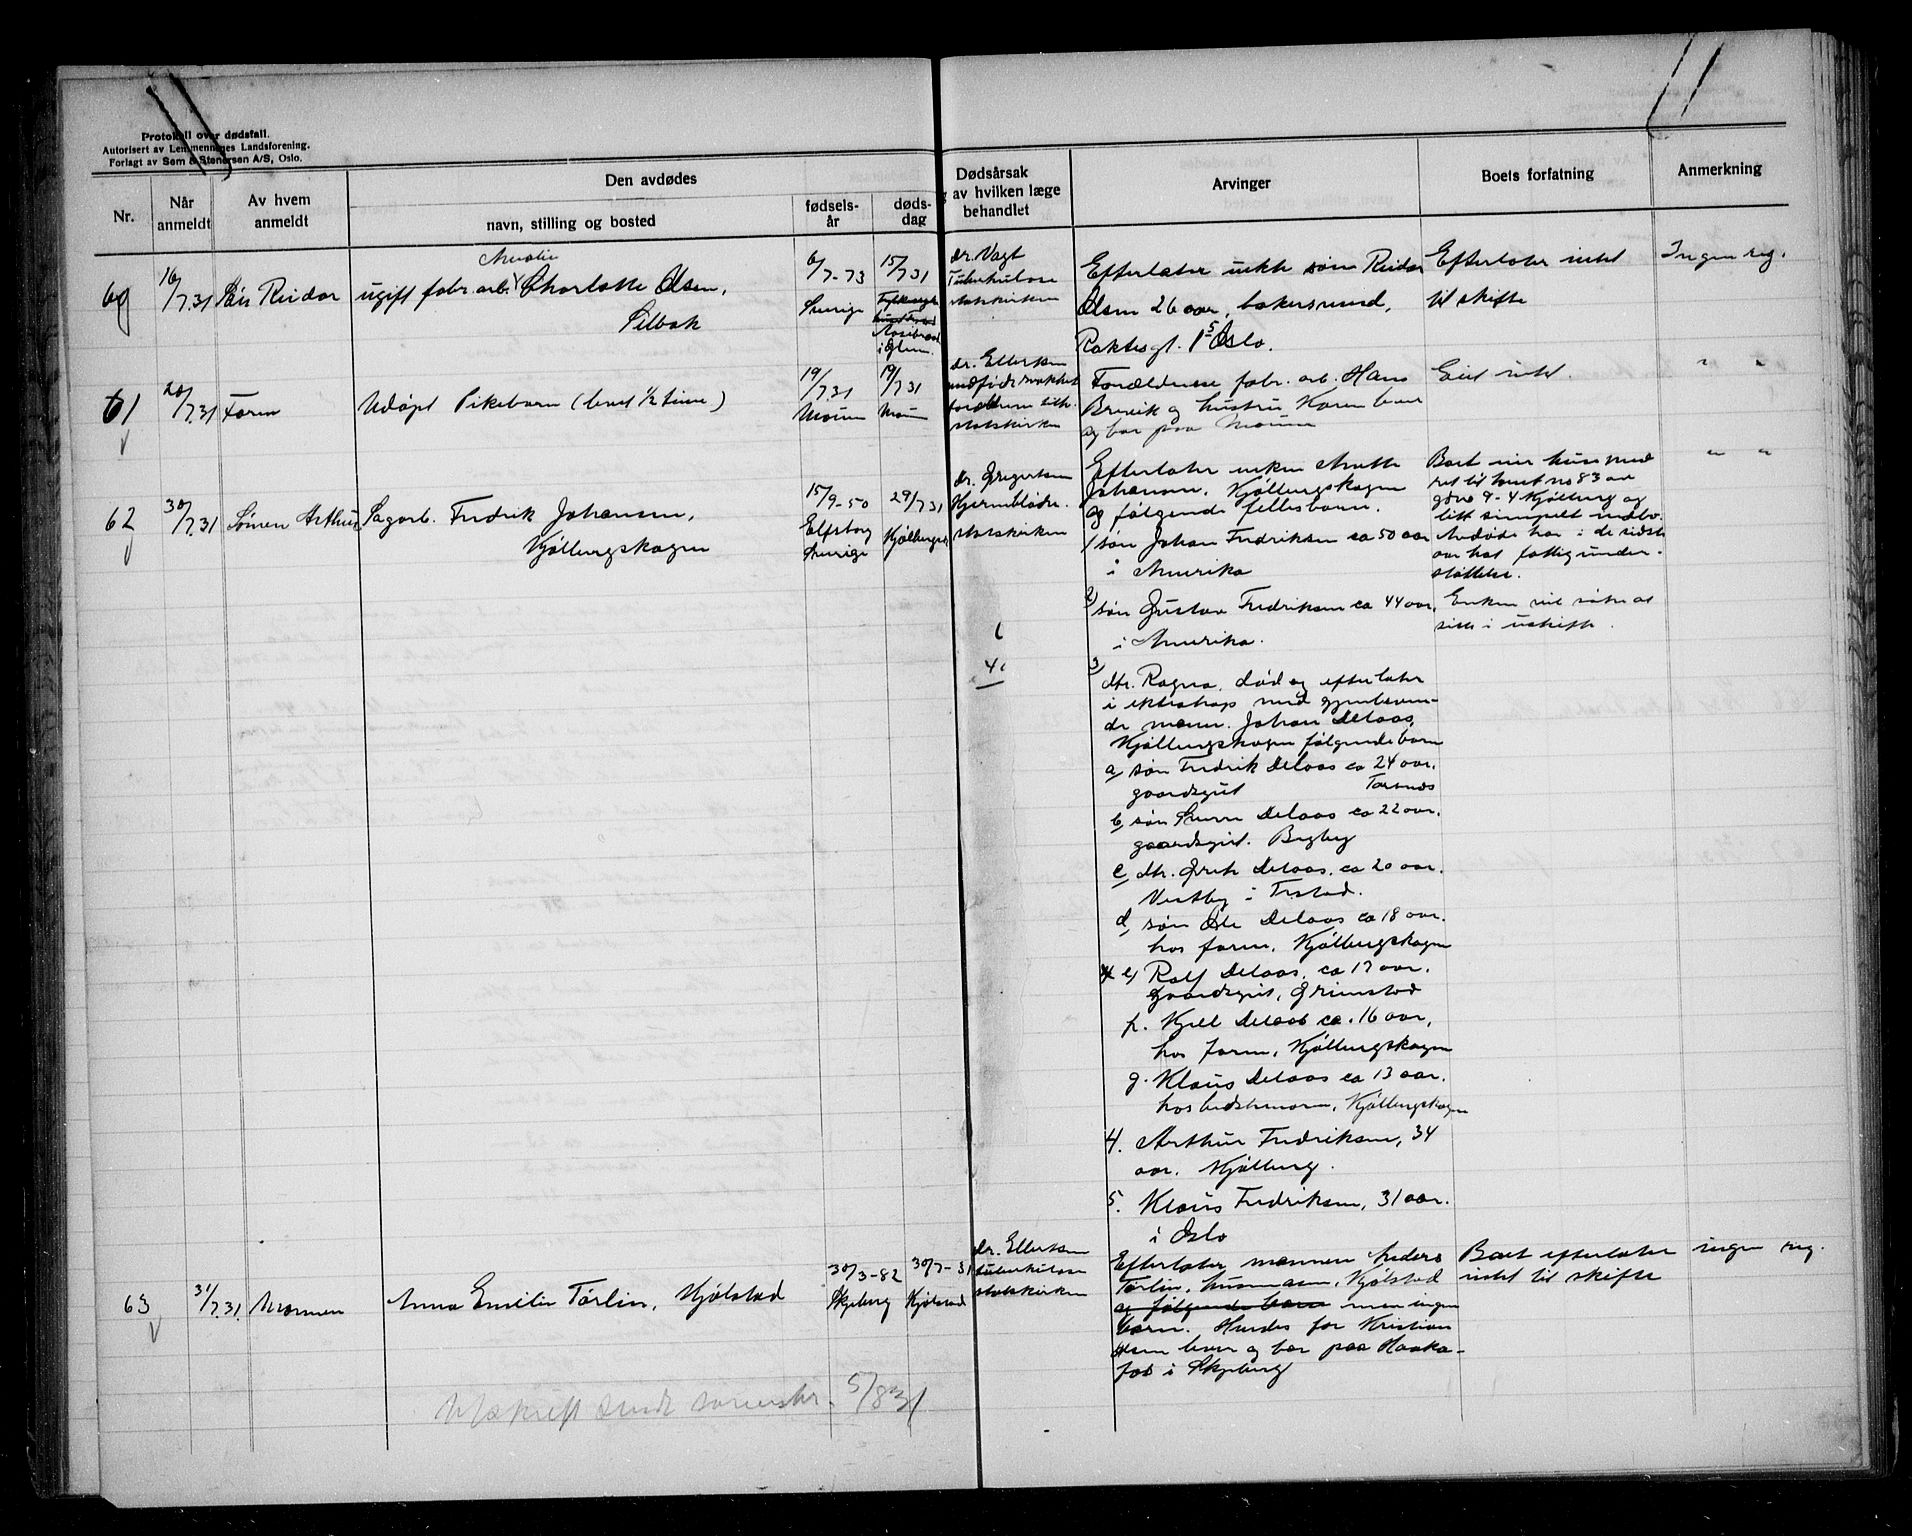 11
11
Protokoll over dødsfall.
Autorisert av Lensmennenes Landsforening.
Forlagt av Sem & Stenersen A/S, Oslo.
Nr.
Når anmeldt
Av hvem anmeldt
Den avdødes
navn, stilling og bosted
fødsels-år
døds-dag
Dødsårsak
av hvilken læge
behandlet
Arvinger
Boets forfatning
Anmerkning
60
16/7 31
Søn Reidar
Amalie
ugift fabr. arb. Charlotte Olsen,
Selbak
6/7-73
Sverige
15/7 31
i Glem.
dr. Vogt
Tuberkulose
statskirken
Efterlater uekte søn Reidar
Olsen 26 aar, bakersvend,
1 5 Oslo.
Efterlater intet
til skifte
Ingen reg.
61
20/7 31
Faren
Udøpt Pikebarn (levet 1/2 time)
19/7 31
Moum
19/7 31
Moum
dr. Ellertsen
statskirken
Forældrene fabr. arb. Hans
Brevik og hustru Karen lever
og bor paa Moum
Eiet intet.
" "
62
30/7 31
Sønnen Arthur
Sagarb. Fredrik Johansen,
Kjølbergskogen
15/9-50
Elfsborg
Sverige
29/7 31
Kjølbergsk.
dr. Gregertsen
Hjerneblødn.
statskirken
Efterlater enken
Johansen, Kjølbergskogen
og følgende fellesbarn.
1/ søn Johan Fredriksen ca 50 aar
i Amerika
2) søn Gustav Fredriksen ca 44 aar,
i Amerika.
3)
dtr. Ragna, død og efterlater
i ekteskap med gjenleven-
de mann. Johan Delaas,
Kjølbergskogen følgende barn
a, søn Fredrik Delaas ca 24 aar.
gaardsgut Torsnes
b, søn Sverre Delaas ca 22 aar.
gaardsgut. Begby
c, dtr. Grete Delaas, ca 20 aar.
Vestby i Tistad.
d, søn Ole Delaas ca 18 aar.
hos faren, Kjølbergskogen
e, Rolf Delaas, ca 17 aar.
gaardsgut, Grimstad
f. Kjell Delaas ca. 16 aar,
hos faren, Kjølbergskogen
g. Klaus Delaas ca 13 aar.
hos bedstemoren, Kjølbergskogen
4. Arthur Fredriksen, 34
aar. Kjølberg.
5. Klaus Fredriksen, 31 aar.
i Oslo
Boet eier hus med
ret til tomt no 83 av
gdno 9-4 Kjølberg og
litt simpelt indbo.
Avdøde har i de sidste
aar hat fattigunder-
støttelse.
Enken vil søke at
sitte i uskifte.
" "
4.
63
31/7 31.
Mannen
Anna Emilie Tørlin, Kjølstad
30/3-82
Skjeberg
30/7-31
Kjølstad
dr. Ellertsen
tuberkulose
statskirken
Efterlater mannen Anders
Tørlin, husmann, Kjølstad
og følgende barn men ingen
barn. Hendes far Kristian
Olsen lever og bor paa Haaka-
fos i Skjeberg
Boet efterlater
intet til skifte
ingen reg.
Utskrift sendt sorenskr. 5/8 31